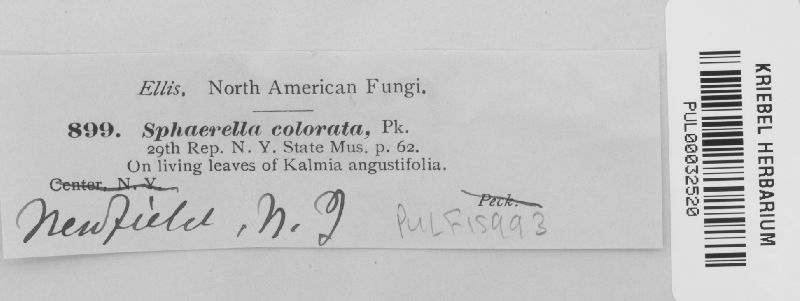 Ellis. North American Fungi.
899. Sphaerella colorata, Pk.
29th Rep. N. Y. State Mus. p. 62.
On living leaves of Kalmia angustifolia.
Center, N. Y.
Peck.
Newfield, N. J
PULF15993
KRIEBEL HERBARIUM
PUL00032520